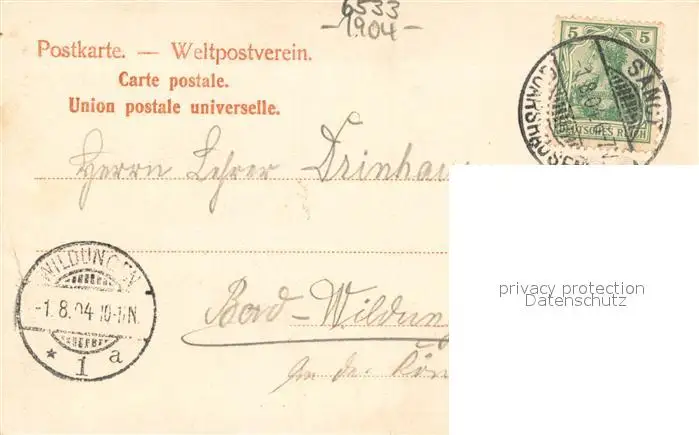 6533
-1904-
Postkarte. — Weltpostverein.
Carte postale.
Union postale universelle.
5 5
DEUTSCHES REICH
SANCT
GOARSHAUSEN
Herrn Lehrer Drinhau
WILDUNGEN
-1.8.04 10-11N.
* 1 a
Bad-Wildung
privacy protection
Datenschutz